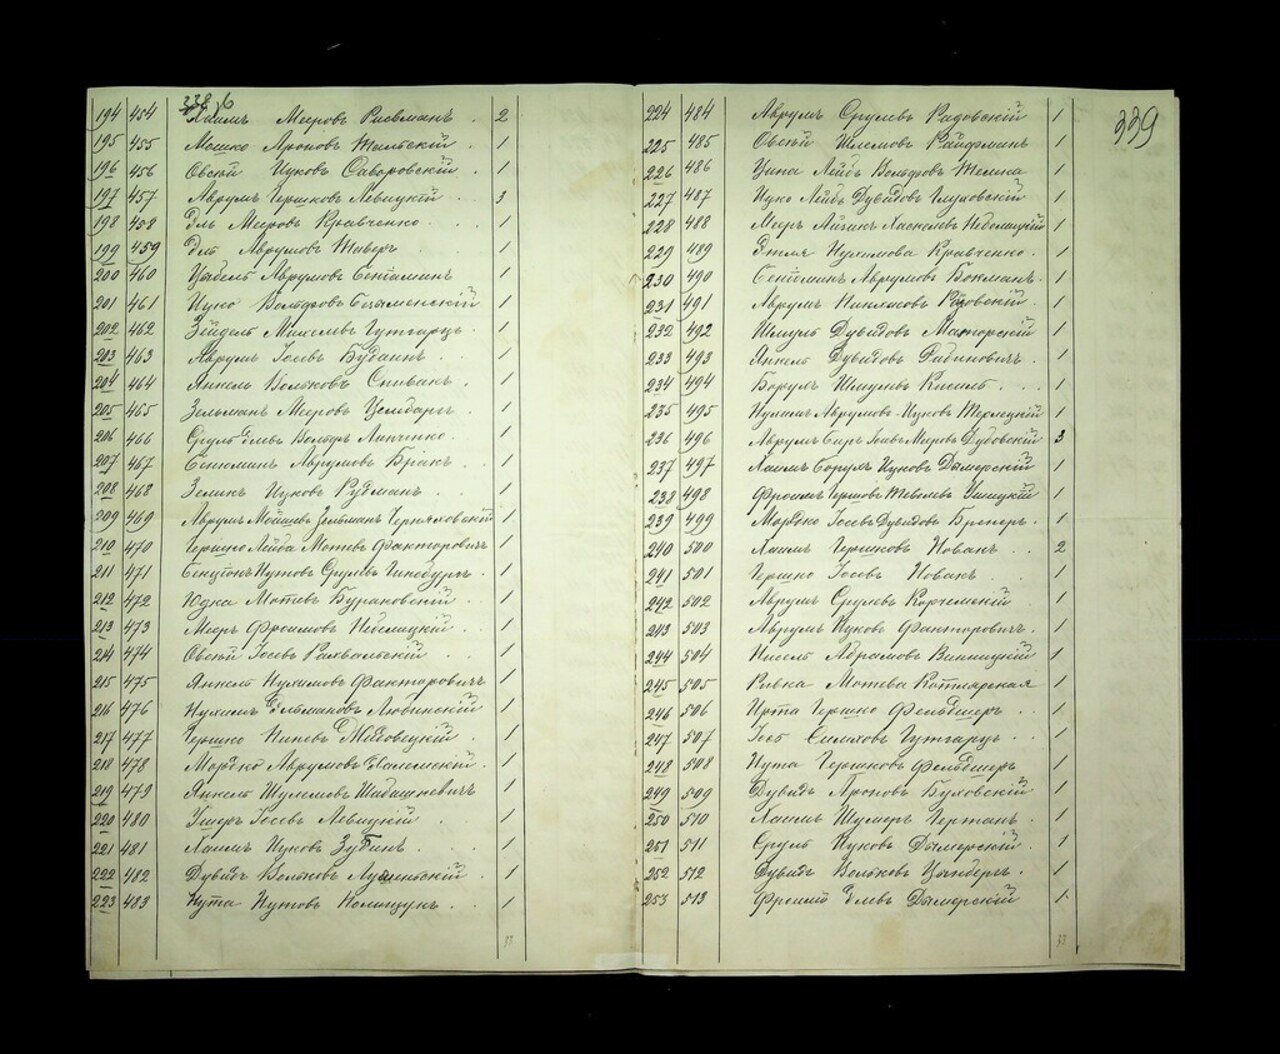 338 об
194 454 Хаимъ Мееровъ Расьманъ . 2
195 455 Мошко Ароновъ Жальскій . 1
196 456 Овсѣй Ицковъ Саворовскій . 1
197 457 Аврумъ Гершковъ Левицкій . . 3
198 458 Эль Мееровъ Кравченко . . . 1
199 459 Аврумовъ . . 1
200 460 Аврумовъ Беніаминъ 1
201 461 Ицко Вольфовъ 1
202 462 Зейдель Михелевъ Гутгарцъ . 1
203 463 Аврумъ Іосевъ . . 1
204 464 Янкель Вольковъ Спивакъ . 1
205 465 Зельманъ Мееровъ . 1
206 466 Сруль Вольфъ Линченко . 1
207 467 Беніоминъ Аврумовъ . . 1
208 468 Зеликъ Ицковъ Рудманъ . . 1
209 469 Аврумъ Мойшевъ Зельманъ Черняховскій 1
210 470 Гершко Лейба Мотевъ Факторовичъ 1
211 471 Нутовъ Срулевъ Гинсбургъ . 1
212 472 Юдка Мотевъ Бураковскій . 1
213 473 Мееръ Фроимовъ Небелицкій . . 1
214 474 Овсѣй Іосевъ Рахвальскій . . 1
215 475 Янкель Нухимовъ Факторовичъ 1
216 476 Нухимъ Ельмановъ Любинскій 1
217 477 Гершко Пинсевъ Медовецкій . 1
218 478 Мордко Аврумовъ . 1
219 479 Янкель Шулемовъ Шабашкевичъ 1
220 480 Ушеръ Іосевъ Левицкій . . 1
221 481 Хаимъ Ицковъ Зубинъ . . . 1
222 482 Дувидъ Вольковъ . 1
223 483 Нута Нутовъ Полищукъ . . 1
33
339
224 484 Аврумъ Срулевъ Радовскій 1
225 485 Овсѣй Шлемовъ Райфманъ 1
226 486 Лейбъ Вольфовъ 1
227 487 Ицко Лейбъ Дувидовъ Глуховскій 1
228 488 Мееръ Айзикъ Хаскелевъ Небелицкій 1
229 489 Этля Нухимова Кравченко . 1
230 490 Беніоминъ Аврумовъ Бокманъ . 1
231 491 Аврумъ 1
232 492 Шмуль Дувидовъ 1
233 493 Янкель Дувидовъ Рабиновичъ . 1
234 494 Борухъ Шмулевъ Кисель . . . 1
235 495 Нухимъ Аврумовъ-Ицковъ 1
236 496 Аврумъ Іосевъ Мееровъ Дубовскій 3
237 497 Хаимъ Борухъ Ицковъ Дымерскій 1
238 498 Фроимъ Гершовъ Ушицкій 1
239 499 Мордко Іосевъ Дувидовъ . 1
240 500 Хаимъ Гершковъ Новакъ . . 2
241 501 Гершко Іосевъ Новакъ . 1
242 502 Аврумъ Срулевъ Корчемскій 1
243 503 Аврумъ Ицковъ Факторовичъ . 1
244 504 Нисель Абрамовъ Винницкій 1
245 505 Ривка Мотева Котлярская 1
246 506 Гершко Фельдшеръ . . 1
247 507 Іось Гутгарцъ . . 1
248 508 Нута Гершковъ Фельдшеръ 1
249 509 Дувидъ Ароновъ Буховскій 1
250 510 Хаимъ Шумеръ Чертанъ . . 1
251 511 Сруль Ицковъ Дымерскій . 1
252 512 Дувидъ Вольковъ . 1
253 513 Фроимъ Елевъ Дымерскій 1
33